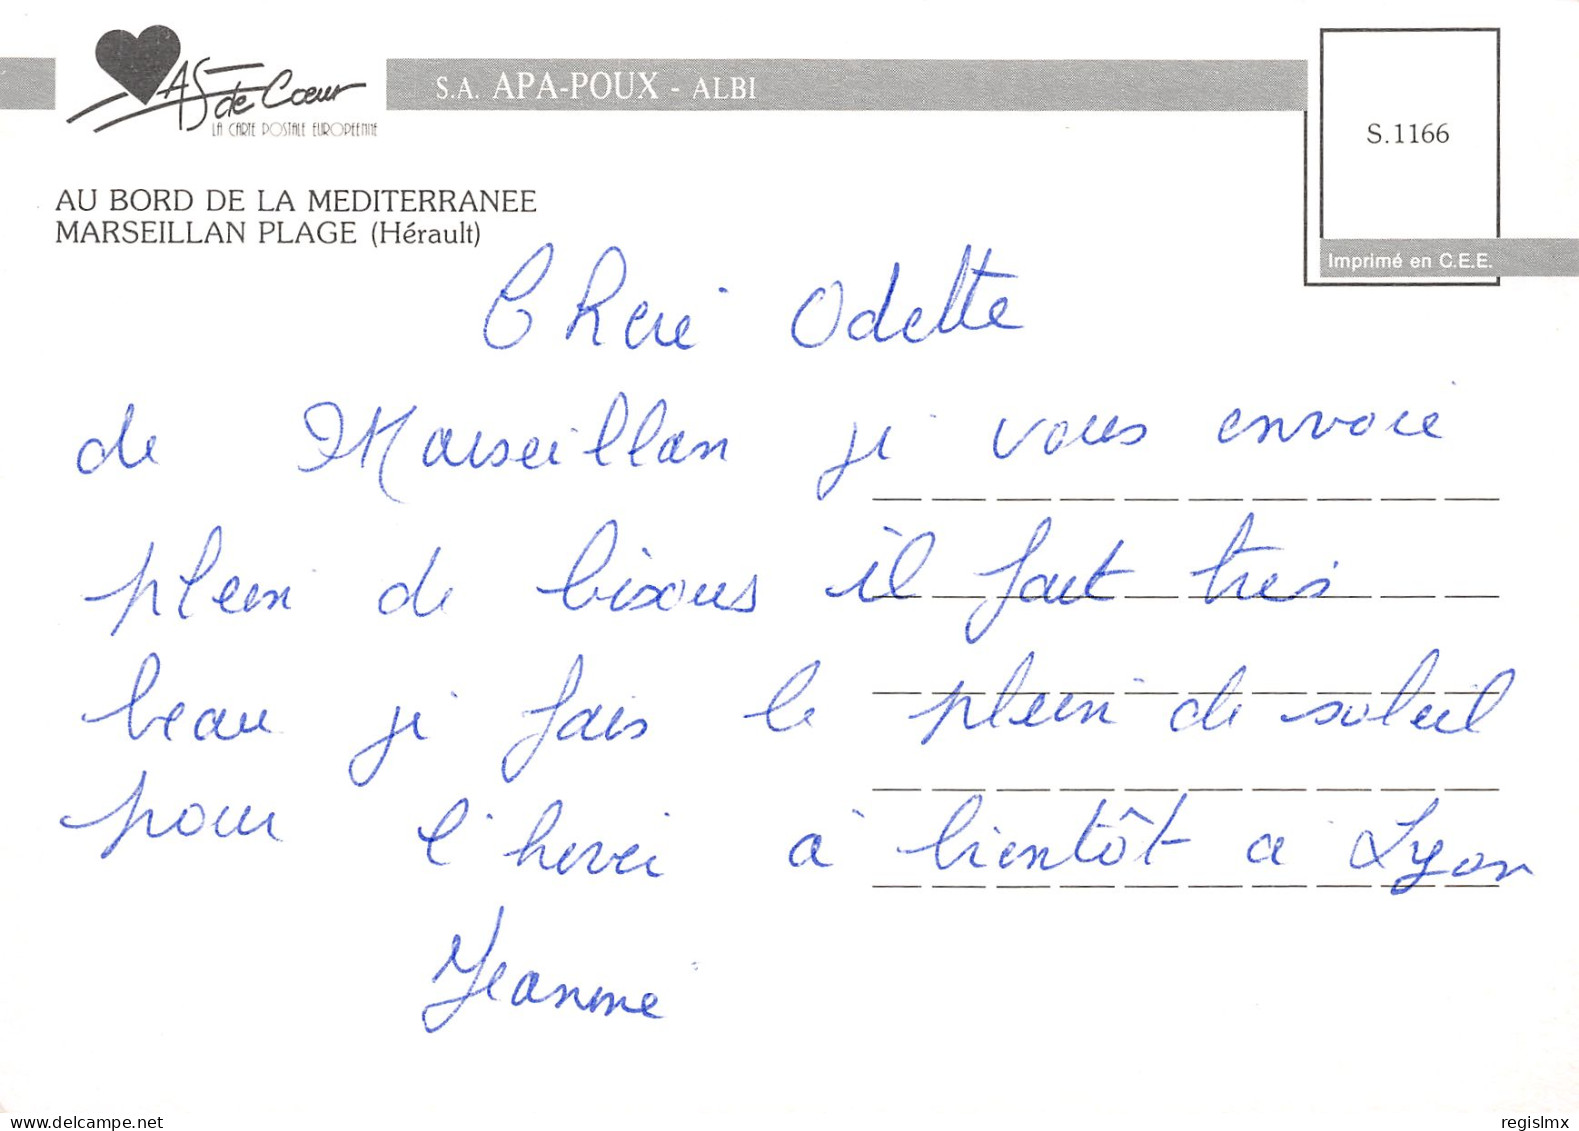 AS de Cœur
LA CARTE POSTALE EUROPEENNE
S.A. APA-POUX - ALBI
S.1166
AU BORD DE LA MEDITERRANEE
MARSEILLAN PLAGE (Hérault)
Imprimé en C.E.E.
Cheré Odette
de Marseillan je vous envoie
plein de bisous il fait tres
beau je fais le plein de soleil
pour l'hiver à bientôt a Lyon
Jeannine
delcampe.net
regislmx